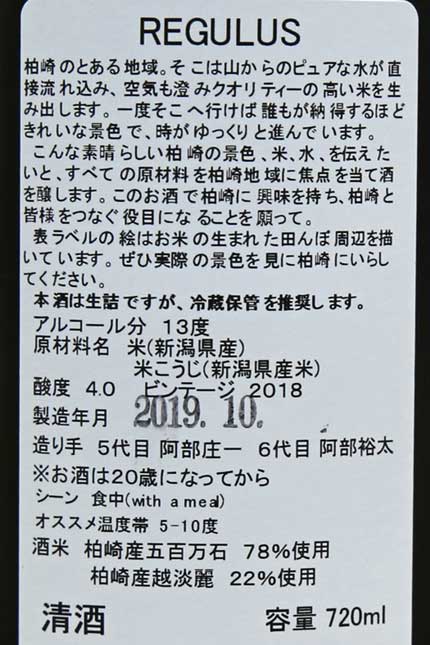 REGULUS
柏崎のとある地域。そこは山からのピュアな水が直
接流れ込み、空気も澄みクオリティーの高い米を生
み出します。一度そこへ行けば誰もが納得するほど
きれいな景色で、時がゆっくりと進んでいます。
こんな素晴らしい柏崎の景色、米、水、を伝えた
いと、すべての原材料を柏崎地域に焦点を当て酒
を醸します。このお酒で柏崎に興味を持ち、柏崎と
皆様をつなぐ役目になることを願って。
表ラベルの絵はお米の生まれた田んぼ周辺を描
いています。ぜひ実際の景色を見に柏崎にいらし
てください。
本酒は生詰ですが、冷蔵保管を推奨します。
アルコール分 13度
原材料名 米(新潟県産)
米こうじ(新潟県産米)
酸度 4.0 ビンテージ 2018
製造年月 2019.10.
造り手 5代目 阿部庄一 6代目 阿部裕太
※お酒は20歳になってから
シーン 食中(with a meal)
オススメ温度帯 5-10度
酒米 柏崎産五百万石 78%使用
柏崎産越淡麗 22%使用
清酒 容量 720ml